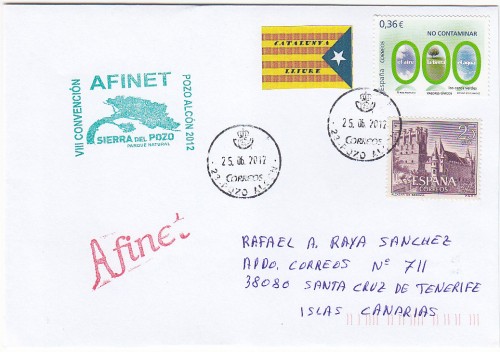 VIII CONVENCIÓN
AFINET
POZO ALCÓN 2012
SIERRA DEL POZO
PARQUE NATURAL
CATALUNYA
LLIURE
0,36 €
NO CONTAMINAR
CORREOS
España
el aire
la tierra
el agua
25.06.2012
CORREOS
25.06.2012
CORREOS
2
PTAS
ESPAÑA
CORREOS
Afinet
RAFAEL A. RAYA SANCHEZ
APDO. CORREOS Nº 711
38080 SANTA CRUZ DE TENERIFE
ISLAS CANARIAS